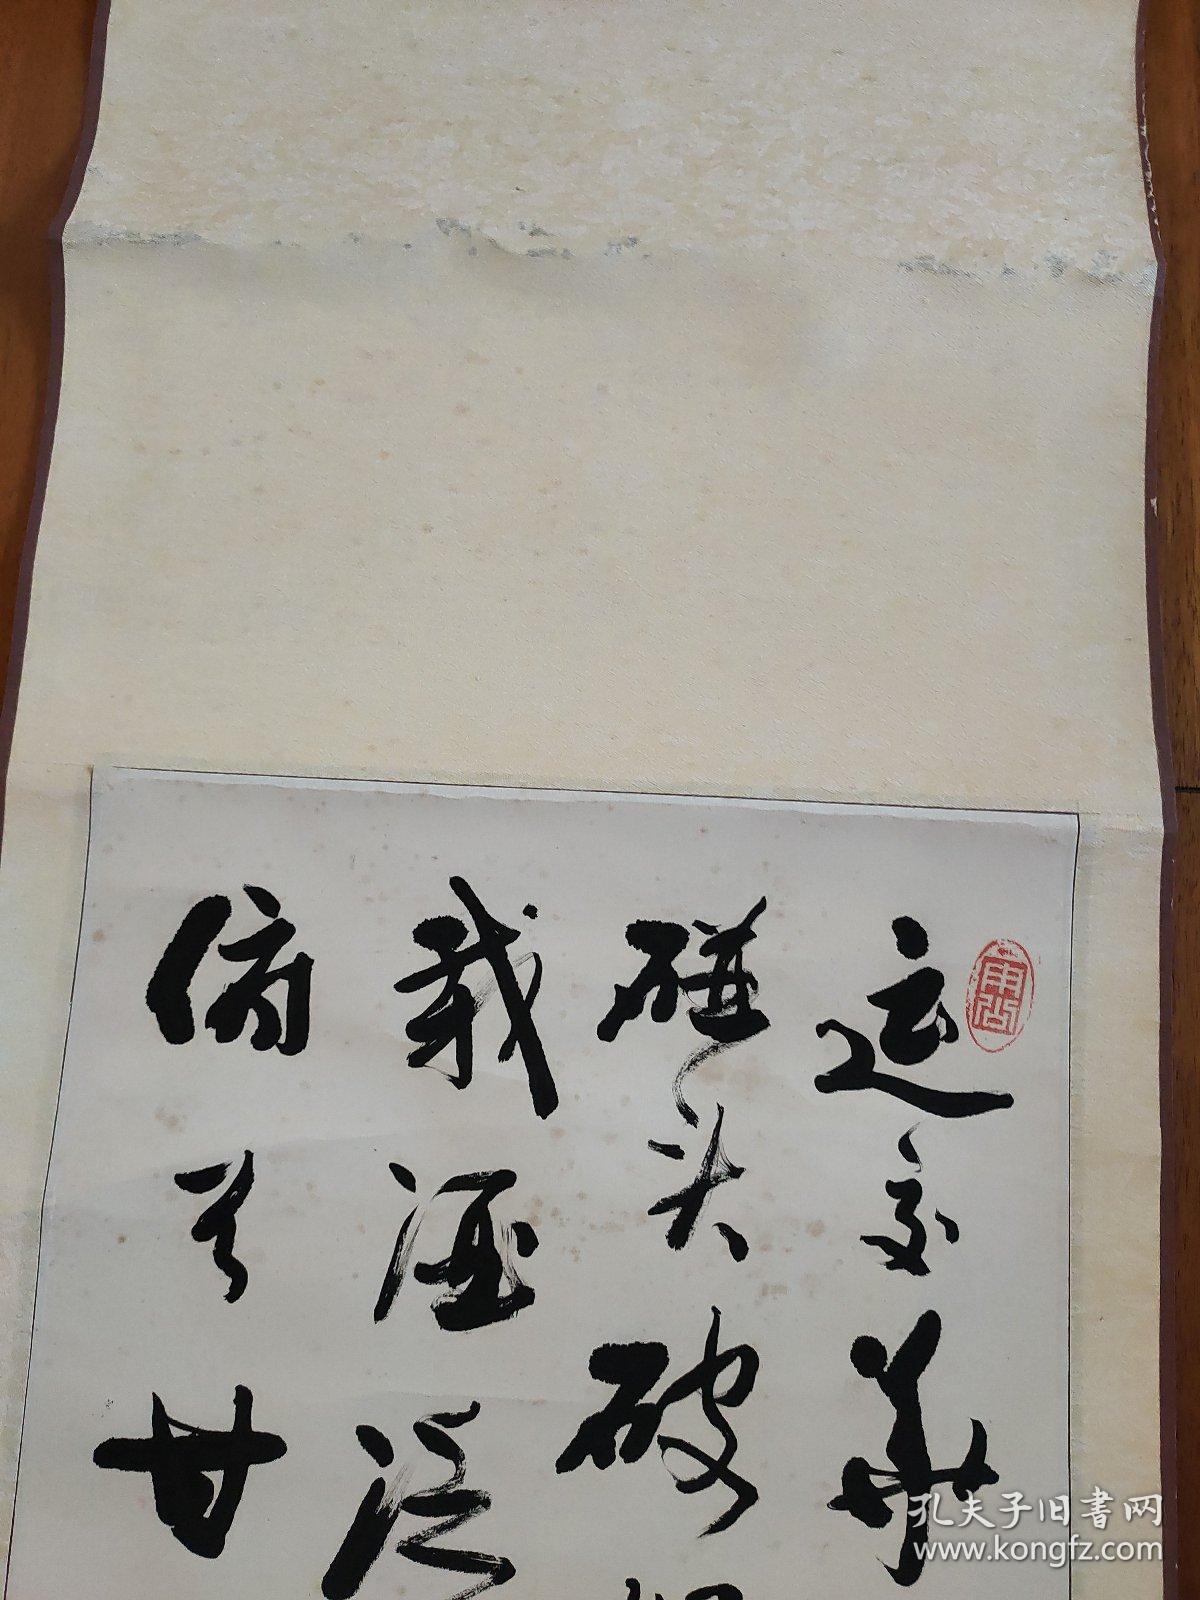 运交华
碰头破
载酒泛
俯首甘
孔夫子旧书网
www.kongfz.com